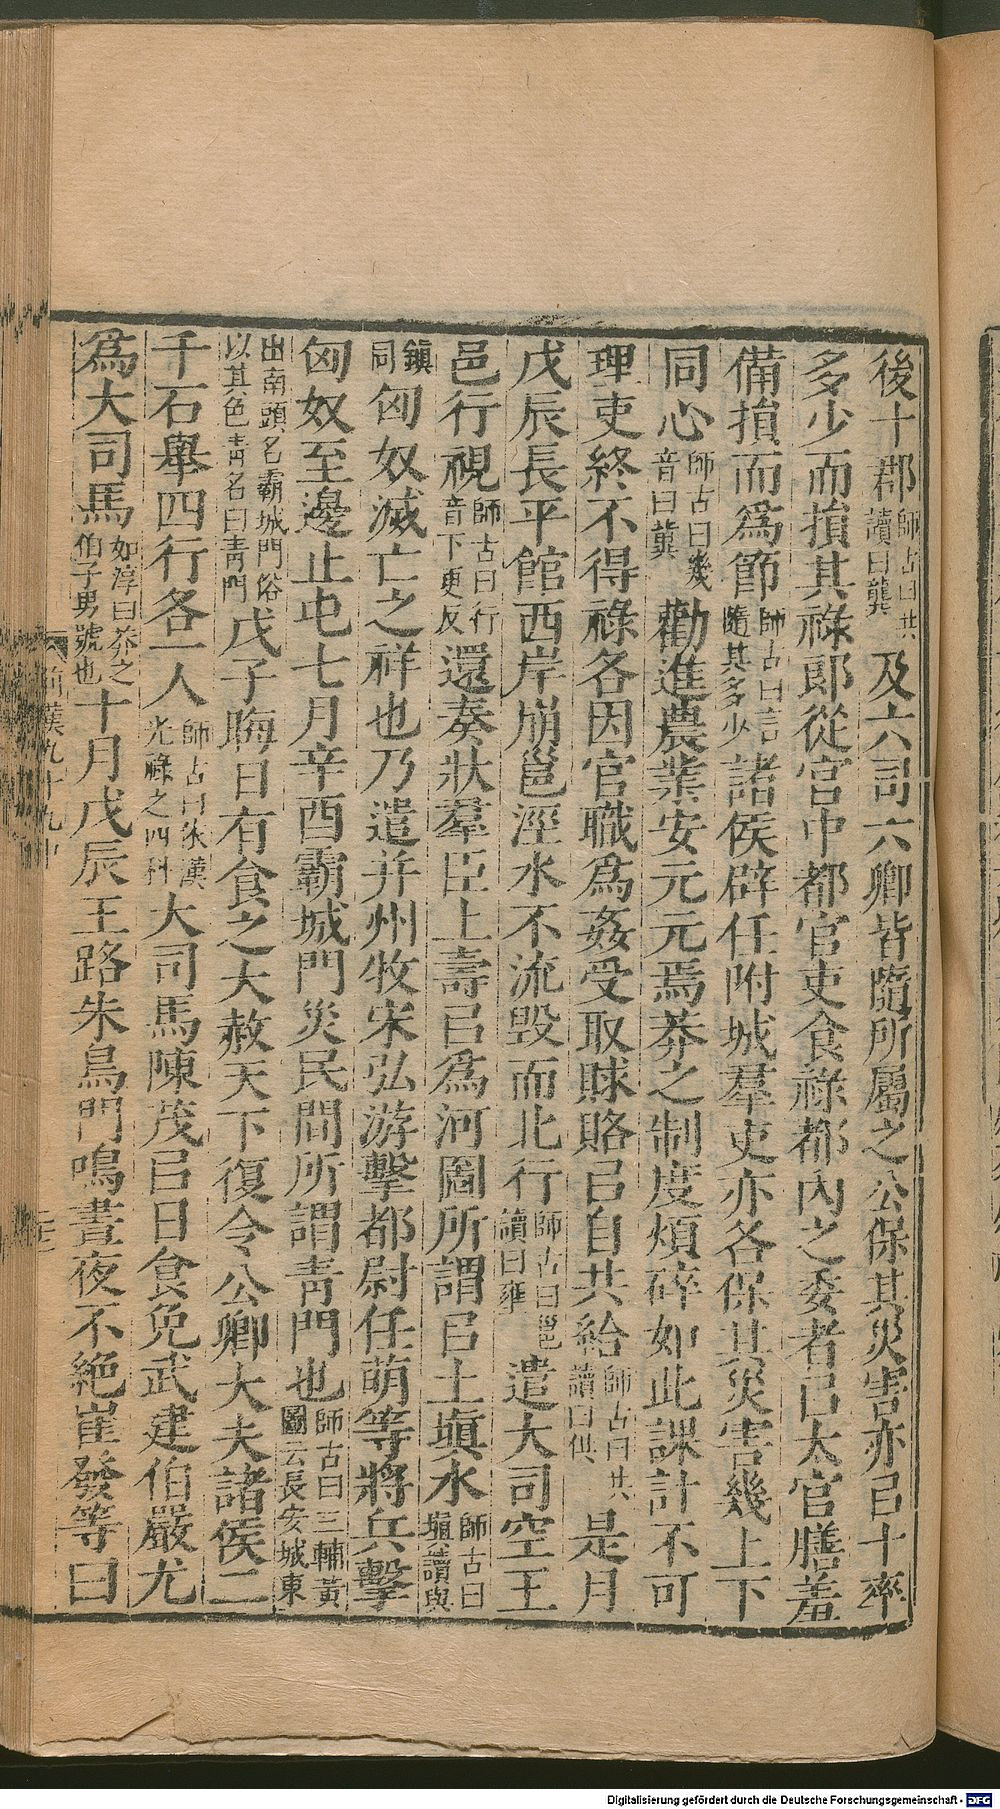 後十郡師古曰共讀曰龔及六司六卿皆隨所屬之公保其災害亦㠯十率
多少而損其祿郎從官中都官吏食祿都內之委者㠯太官膳羞
備損而爲節師古曰言隨其多少諸侯辟任附城羣吏亦各保其災害幾上下
同心師古曰幾音曰冀勸進農業安元元焉莽之制度煩碎如此課計不可
理吏終不得祿各因官職爲姦受取賕賂㠯自共給師古曰共讀曰供是月
戊辰長平館西岸崩邕涇水不流毀而北行師古曰邕讀曰雍遣大司空王
邑行視師古曰行音下更反還奏狀羣臣上壽㠯爲河圖所謂㠯土塡水師古曰塡讀與
鎭同匈奴滅亡之祥也乃遣并州牧宋弘游擊都尉任萌等將兵擊
匈奴至邊止屯七月辛酉霸城門災民間所謂青門也師古曰三輔黃圖云長安城東
出南頭名霸城門俗以其色靑名曰靑門戊子晦日有食之大赦天下復令公卿大夫諸侯二
千石舉四行各一人師古曰依漢光祿之四科大司馬陳茂㠯日食免武建伯嚴尤
爲大司馬如淳曰莽之伯子男號也十月戊辰王路朱鳥門鳴晝夜不絕崔發等曰
前漢九十九中
Digitalisierung gefördert durch die Deutsche Forschungsgemeinschaft - DFG